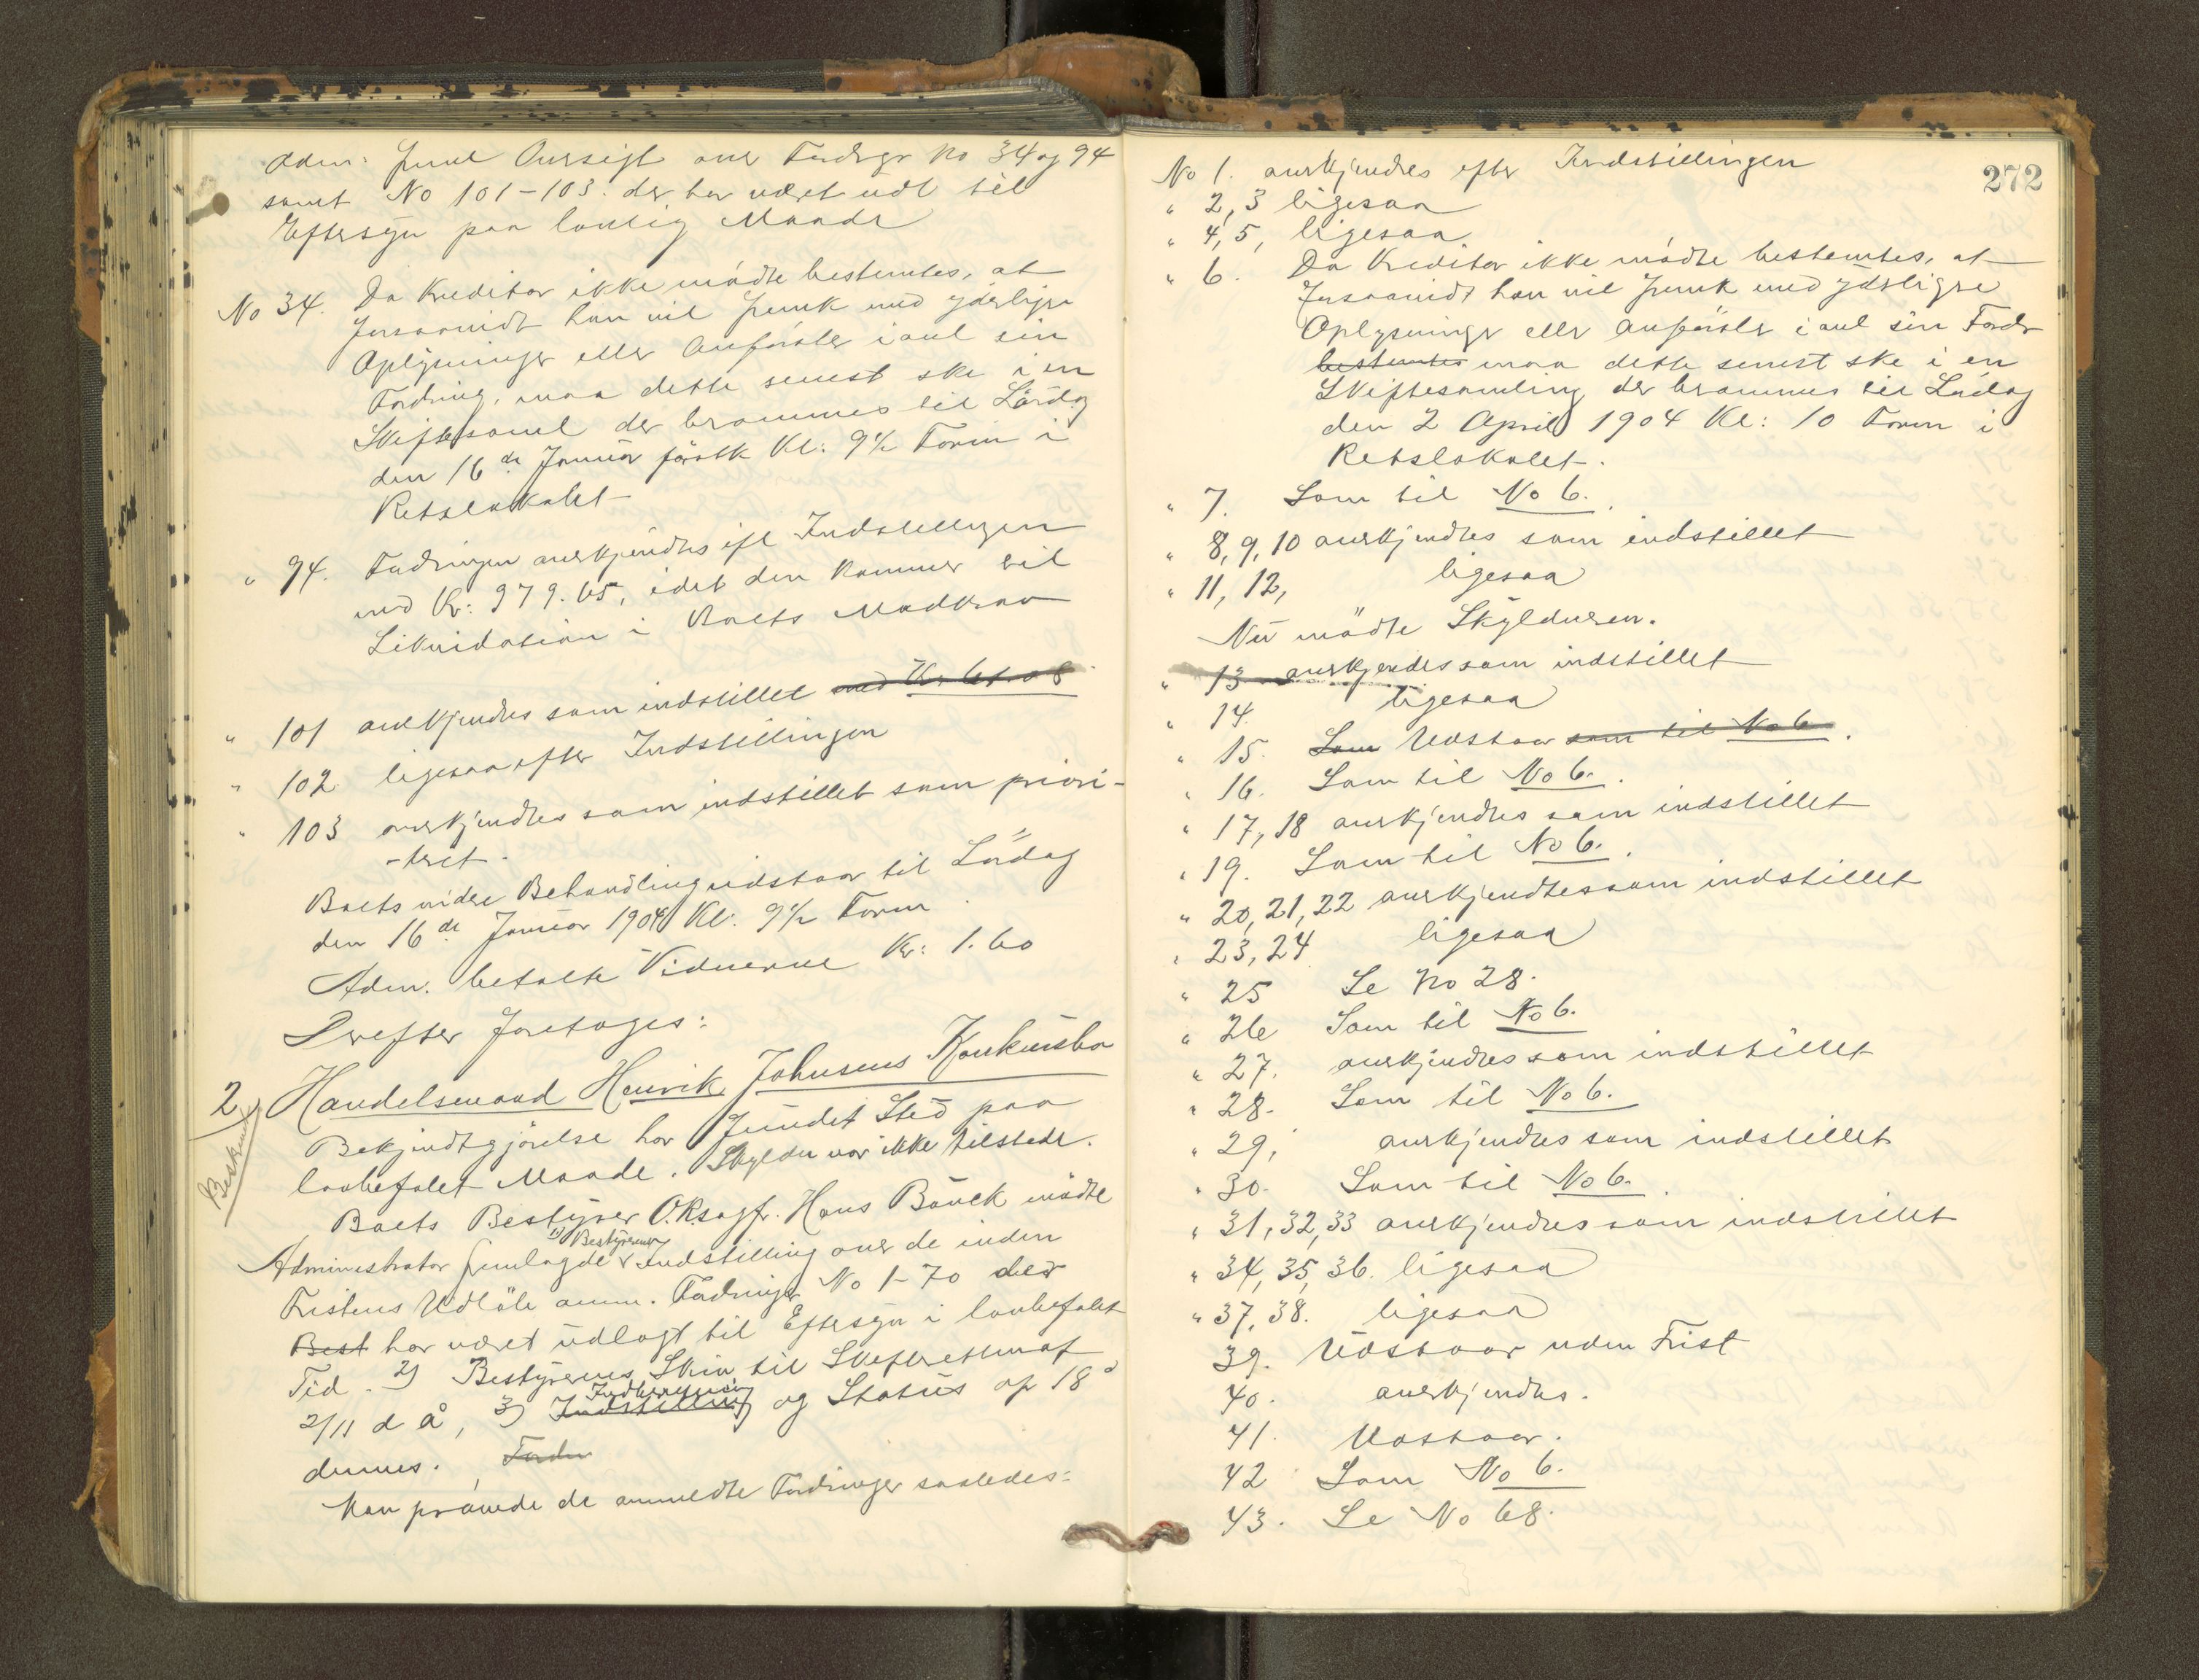 Adm: freml Oversigt over Fordrgr No 34 og 94
samt No 101-103. der har været udl til
Eftersyn paa lovlig Maade
No 34. Da Kreditor ikke mødte bestemtes, at
forsaavidt han vil fremk med yderligere
Oplysninger eller Anførsler i anl sin
Fordring, maa dette senest ske i en
Skiftesaml der berammes til Lørdag
den 16de Januar førstk Kl: 9½ Form i
Retslokalet
" 94. Fordringen anerkjendtes ifl Indstillingen
med Kr: 979.65, idet den kommer til
Likvidation i Boets Modkrav
" 101 anerkjendtes som indstillet med Kr
" 102 ligesaa efter Indstillingen
" 103 anerkjendtes som indstillet som priori-
-tret.
Boets videre Behandling udstaar til Lørdag
den 16de Januar 1904 Kl. 9½ Form.
Adm. betalte Vidnerne Kr: 1.60
Derefter foretoges:
2) Handelsmand Henrik Johnsens Konkursbo
Beskrevet
Bekjendtgjørelse har fundet Sted paa
lovbefalet Maade. Skyldn var ikke tilstede.
Boets Bestyrer O.R.sagf. Hans Bauck mødte
1) Bestyrerens
Administrator fremlagde Indstilling over de inden
Fristens Udløb anm. Fordringer No 1-70 der
Best har været udlagt til Eftersyn i lovbefalet
Tid. 2) Bestyrerens Skriv til Skifteretten af
Indberetning
2/11 d å, 3) Indstilling og Status af 18d
dennes. Fordr
Man prøvede de anmeldte Fordringer saaledes:
272
No 1. anerkjendtes efter Indstillingen
" 2, 3 ligesaa
" 4, 5, ligesaa
" 6. Da Kreditor ikke mødte bestemtes, at
forsaavidt han vil fremk med yderligere
Oplysninger eller Anførsler i anl sin Fordr
bestemtes maa dette senest ske i en
Skiftesamling der berammes til Lørdag
den 2 April 1904 Kl: 10 Form i
Retslokalet.
" 7. Som til No 6.
" 8, 9, 10 anerkjendtes som indstillet
" 11, 12, ligesaa
Nu mødte Skyldneren.
" 13 anerkjendes som indstillet
" 14. ligesaa
" 15. Som Udstaar som til No 6.
" 16. Som til No 6.
" 17, 18 anerkjendtes som indstillet
" 19. Som til No 6.
" 20, 21, 22 anerkjendtes som indstillet
" 23, 24 ligesaa
" 25 Se No 28.
" 26 Som til No 6.
" 27. anerkjendtes som indstillet
" 28. Som til No 6.
" 29, anerkjendtes som indstillet
" 30. Som til No 6.
" 31, 32, 33 anerkjendtes som indstillet
" 34, 35, 36. ligesaa
" 37, 38. ligesaa
39. Udstaar uden Frist
40. anerkjendtes.
41. Udstaar.
42 Som No 6.
43. Se No 68.